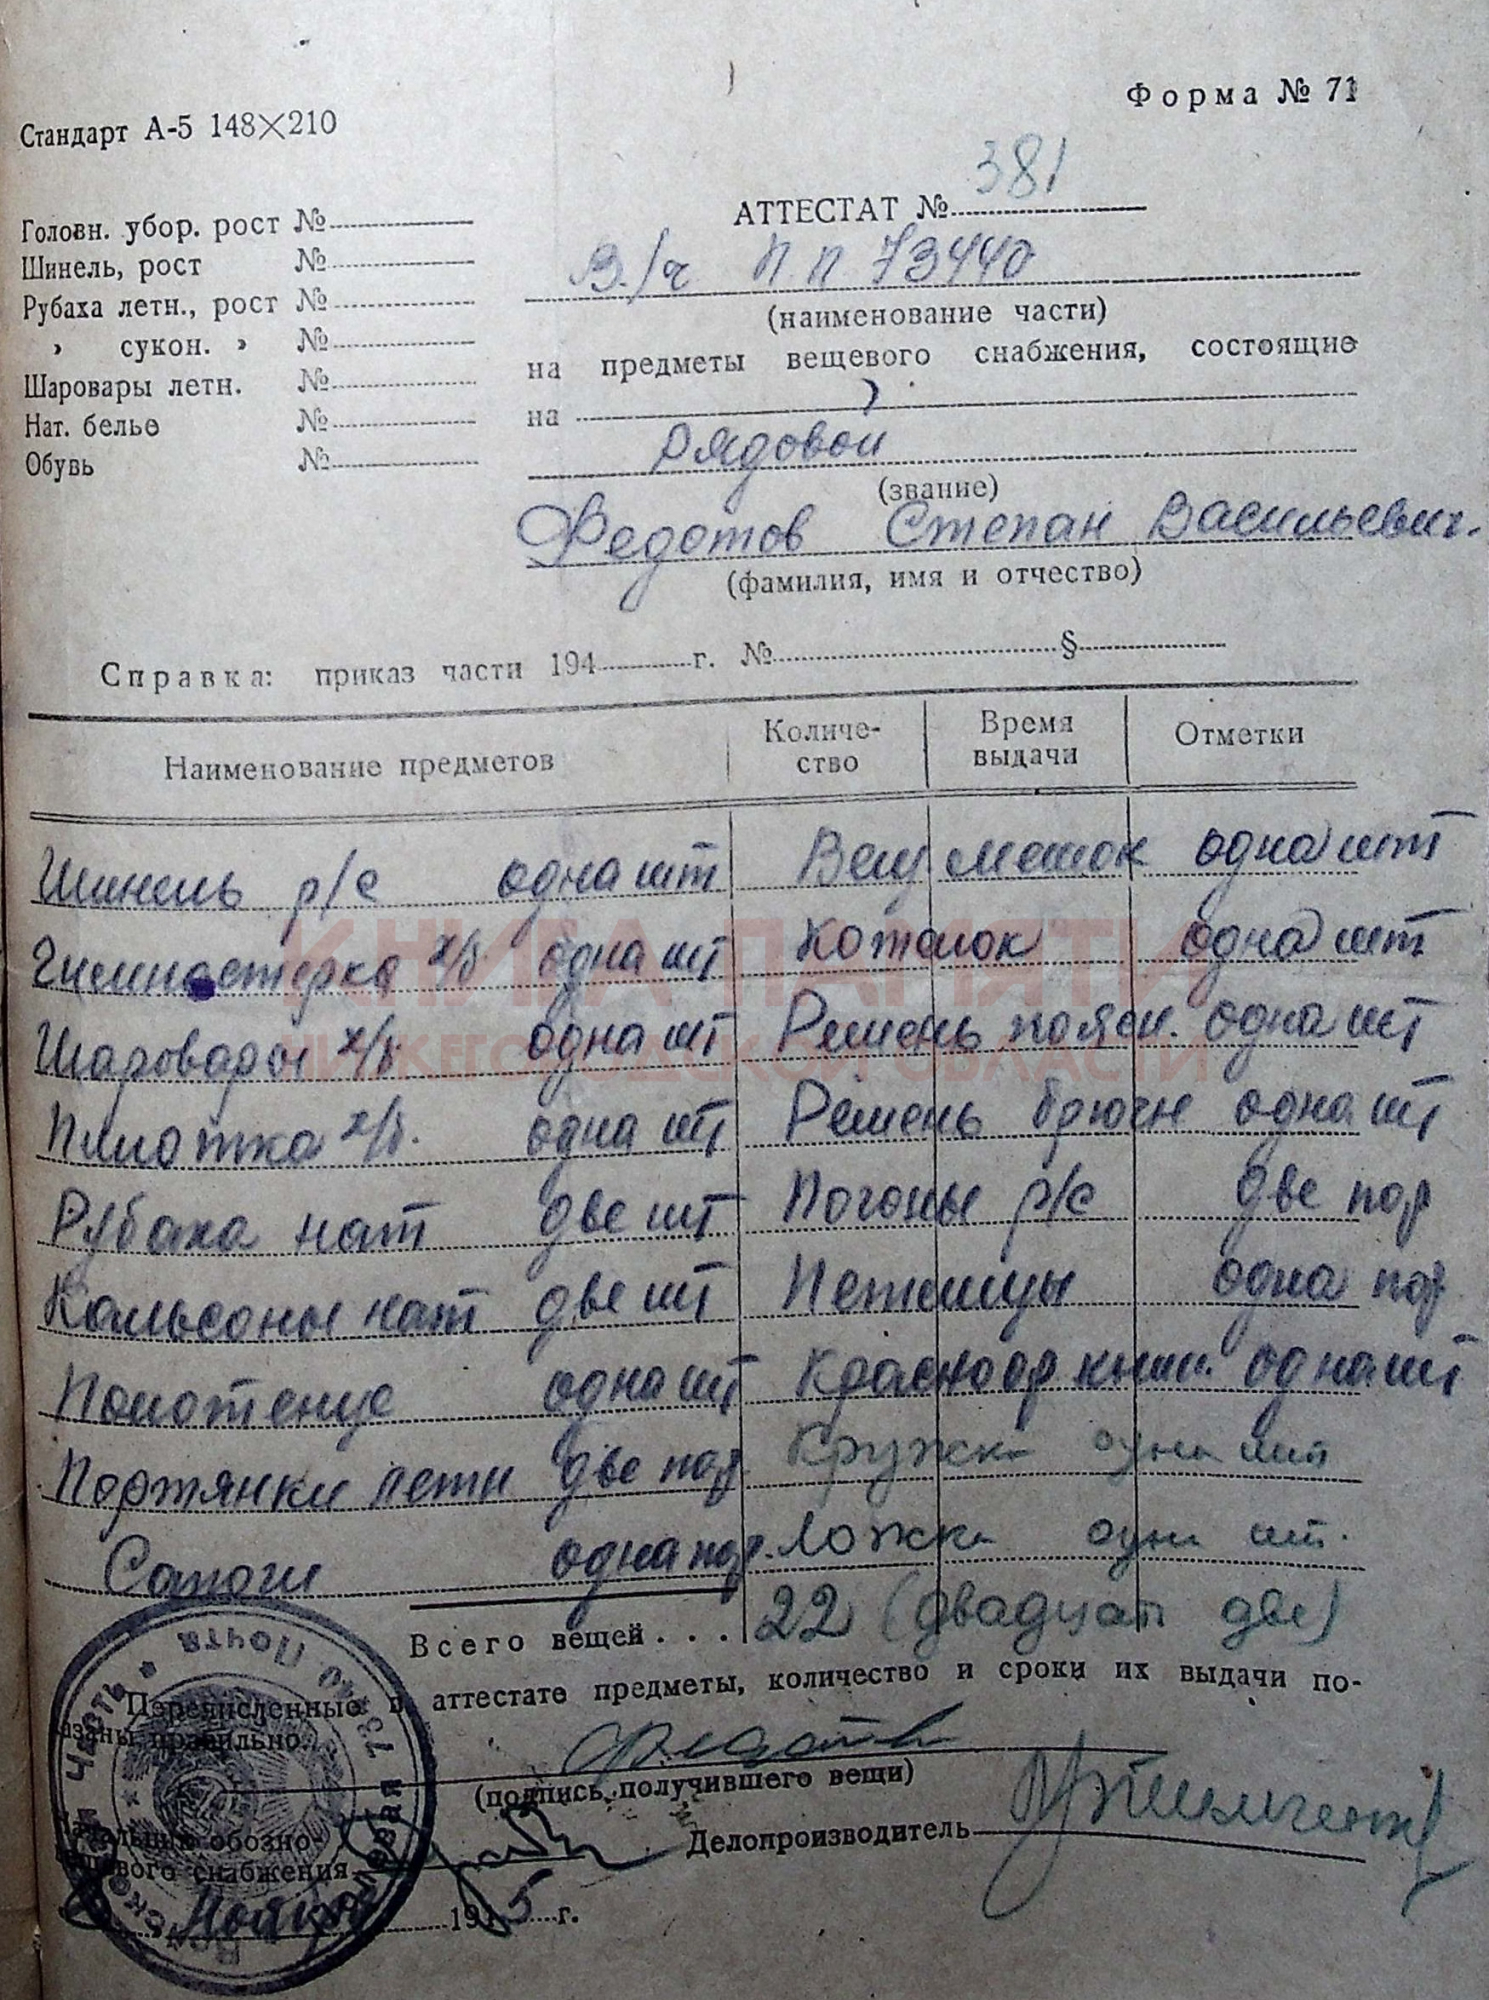 Форма № 71
Стандарт А-5 148×210
АТТЕСТАТ № 381
Головн. убор. рост №
Шинель, рост №
Рубаха летн., рост №
› сукон. › №
Шаровары летн. №
Нат. белье №
Обувь №
В/ч П П 73440
(наименование части)
на предметы вещевого снабжения, состоящие
на
Рядовой
(звание)
Федотов Степан Васильевич.
(фамилия, имя и отчество)
Справка: приказ части 194 г. № §
Наименование предметов Количе-ство Время выдачи Отметки
Шинель р/с одна шт Вещ мешок одна шт
Гимнастерка х/б одна шт Котелок одна шт
Шаровары х/б одна шт Ремень поясн. одна шт
Пилотка х/б. одна шт Ремень брючн одна шт
Рубаха нат две шт Погоны р/с две пар
Кальсоны нат две шт Петлицы одна пар
Полотенце одна шт Красноар книж. одна шт
Портянки летн две пар Кружка одна шт
Сапоги одна пар. Ложка одна шт.
Всего вещей . . . 22 (двадцат две)
Перечисленные в аттестате предметы, количество и сроки их выдачи по-
казаны правильно.
Федотов
(подпись получившего вещи)
Начальник обозно-
вещевого снабжения
Делопроизводитель
Ноября 1945 г.
Полевая Почта 73440
Войсковая Часть
КНИГА ПАМЯТИ
НИЖЕГОРОДСКОЙ ОБЛАСТИ